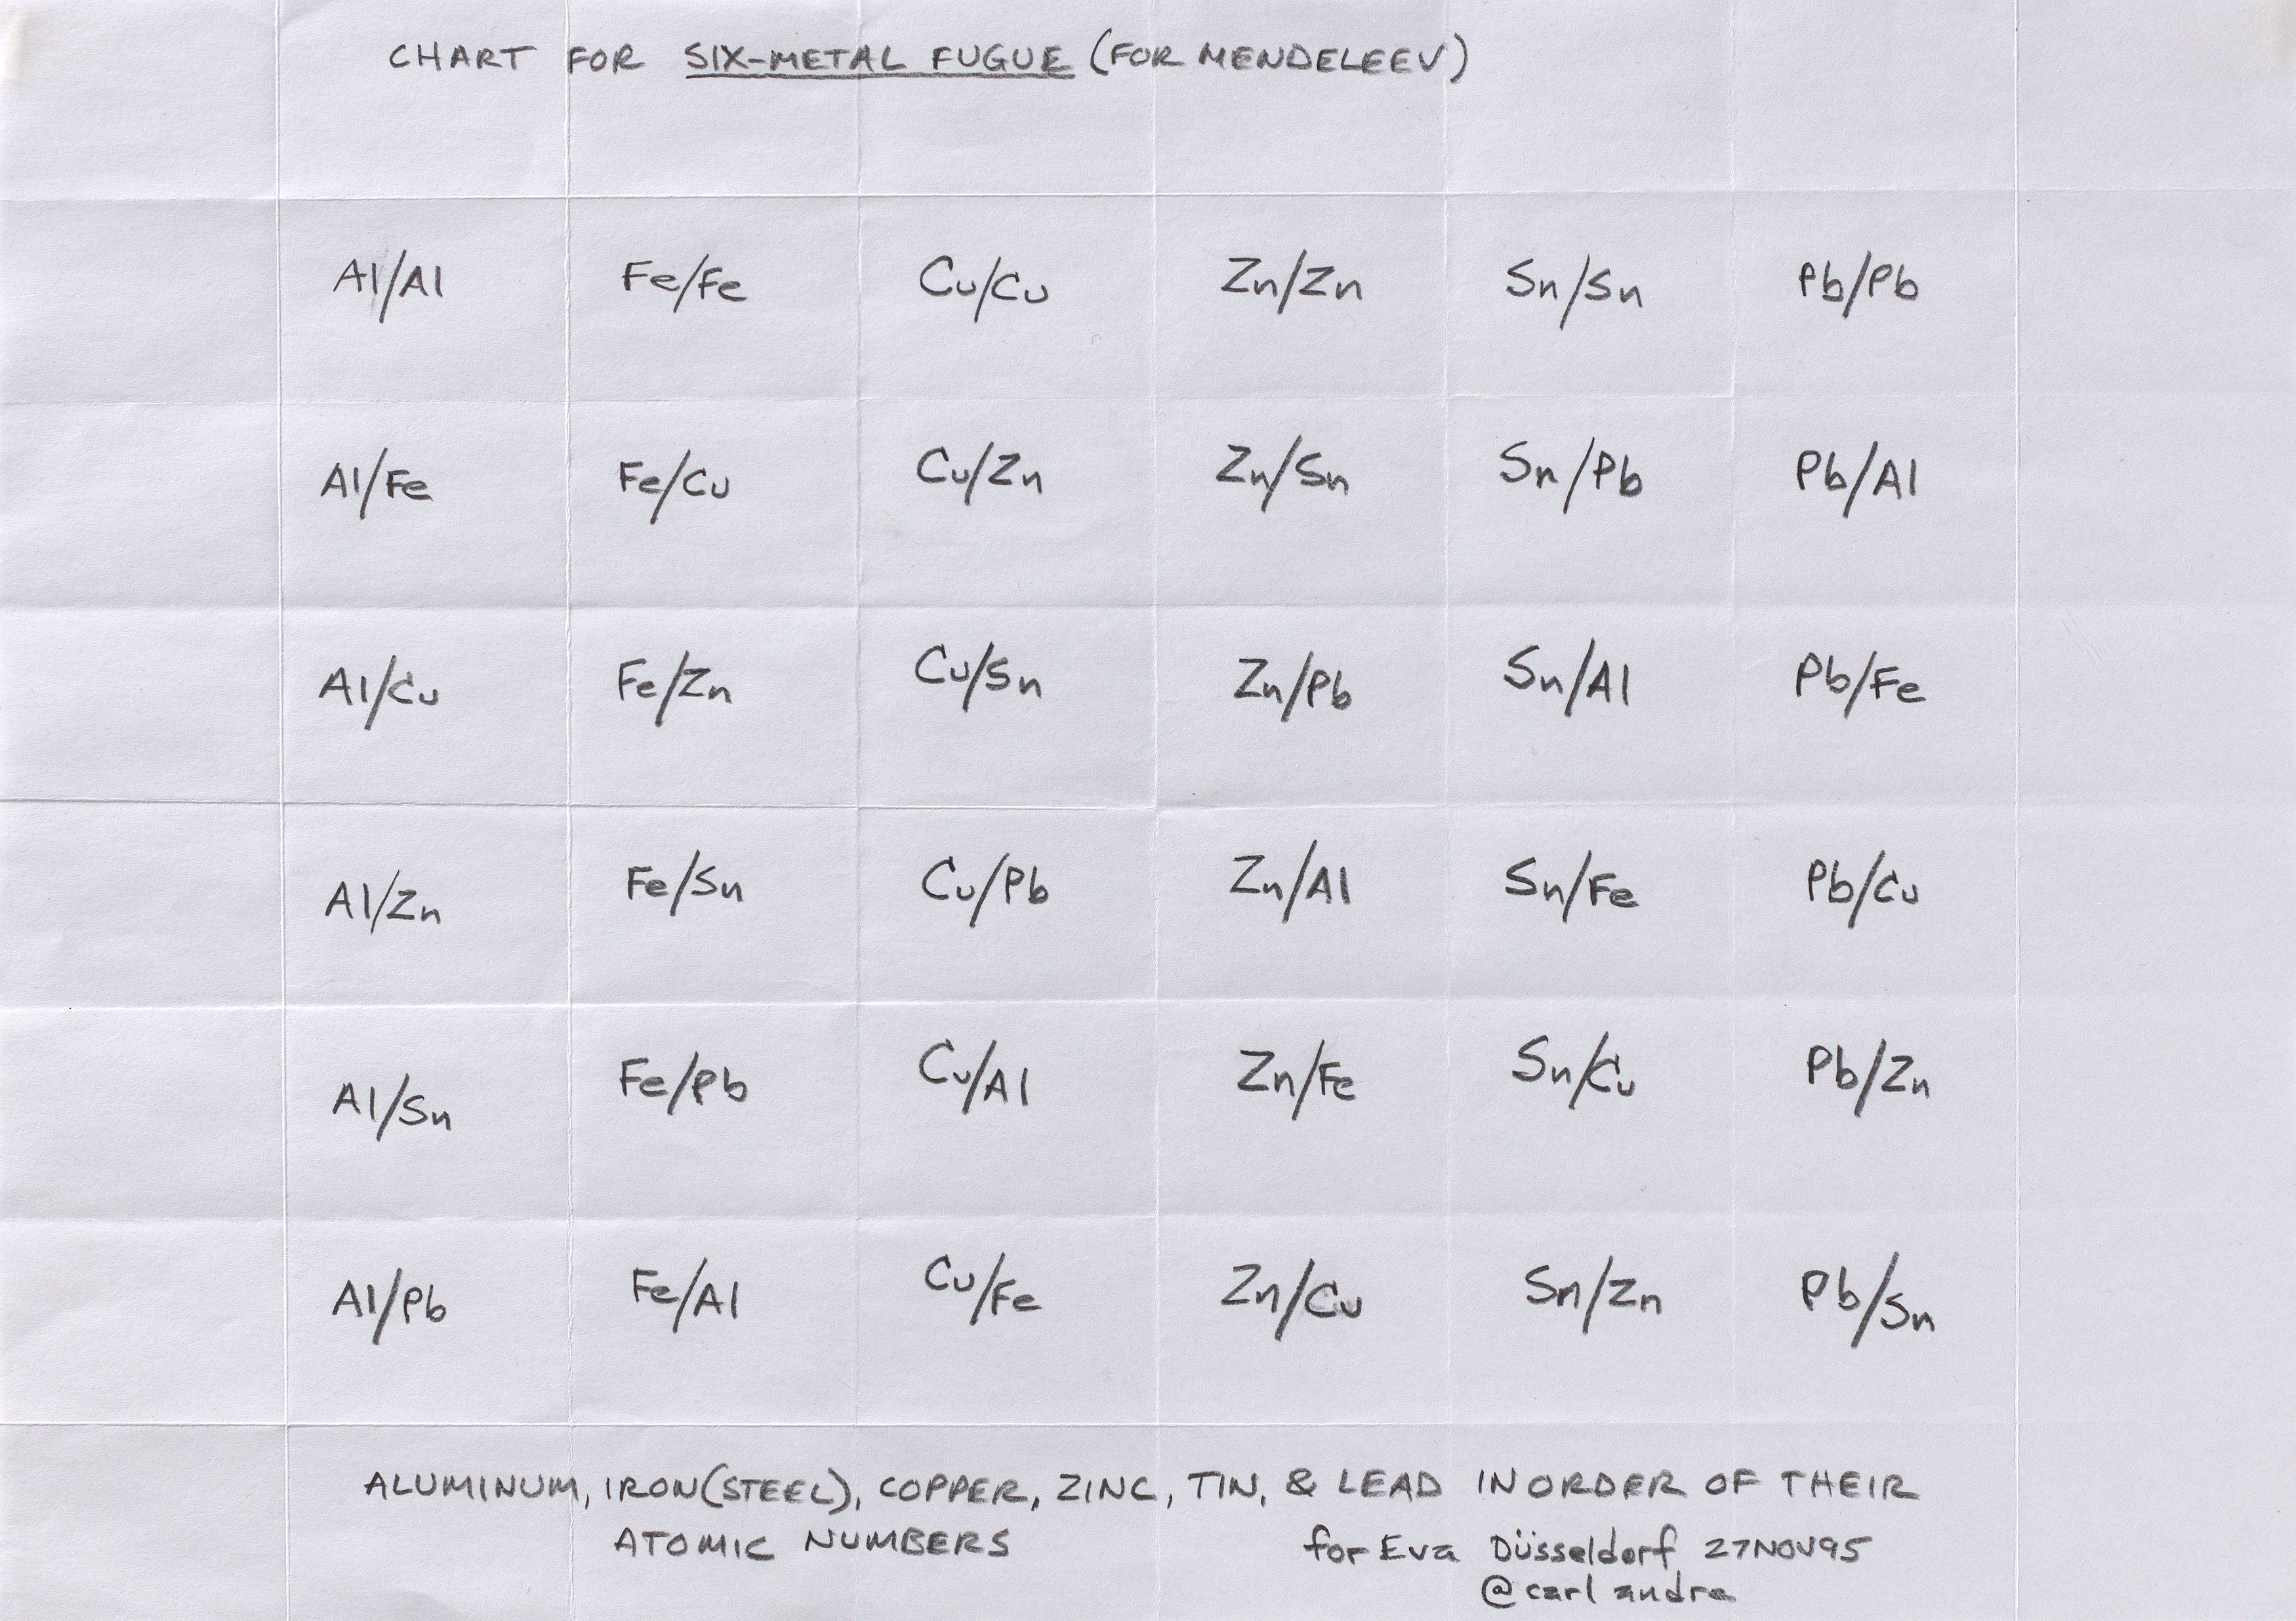 CHART FOR SIX-METAL FUGUE (FOR MENDELEEV)
Al/Al Fe/Fe Cu/Cu Zn/Zn Sn/Sn Pb/Pb
Al/Fe Fe/Cu Cu/Zn Zn/Sn Sn/Pb Pb/Al
Al/Cu Fe/Zn Cu/Sn Zn/Pb Sn/Al Pb/Fe
Al/Zn Fe/Sn Cu/Pb Zn/Al Sn/Fe Pb/Cu
Al/Sn Fe/Pb Cu/Al Zn/Fe Sn/Cu Pb/Zn
Al/Pb Fe/Al Cu/Fe Zn/Cu Sn/Zn Pb/Sn
ALUMINUM, IRON(STEEL), COPPER, ZINC, TIN, & LEAD IN ORDER OF THEIR
ATOMIC NUMBERS
for Eva Düsseldorf 27NOV95
@carl andre